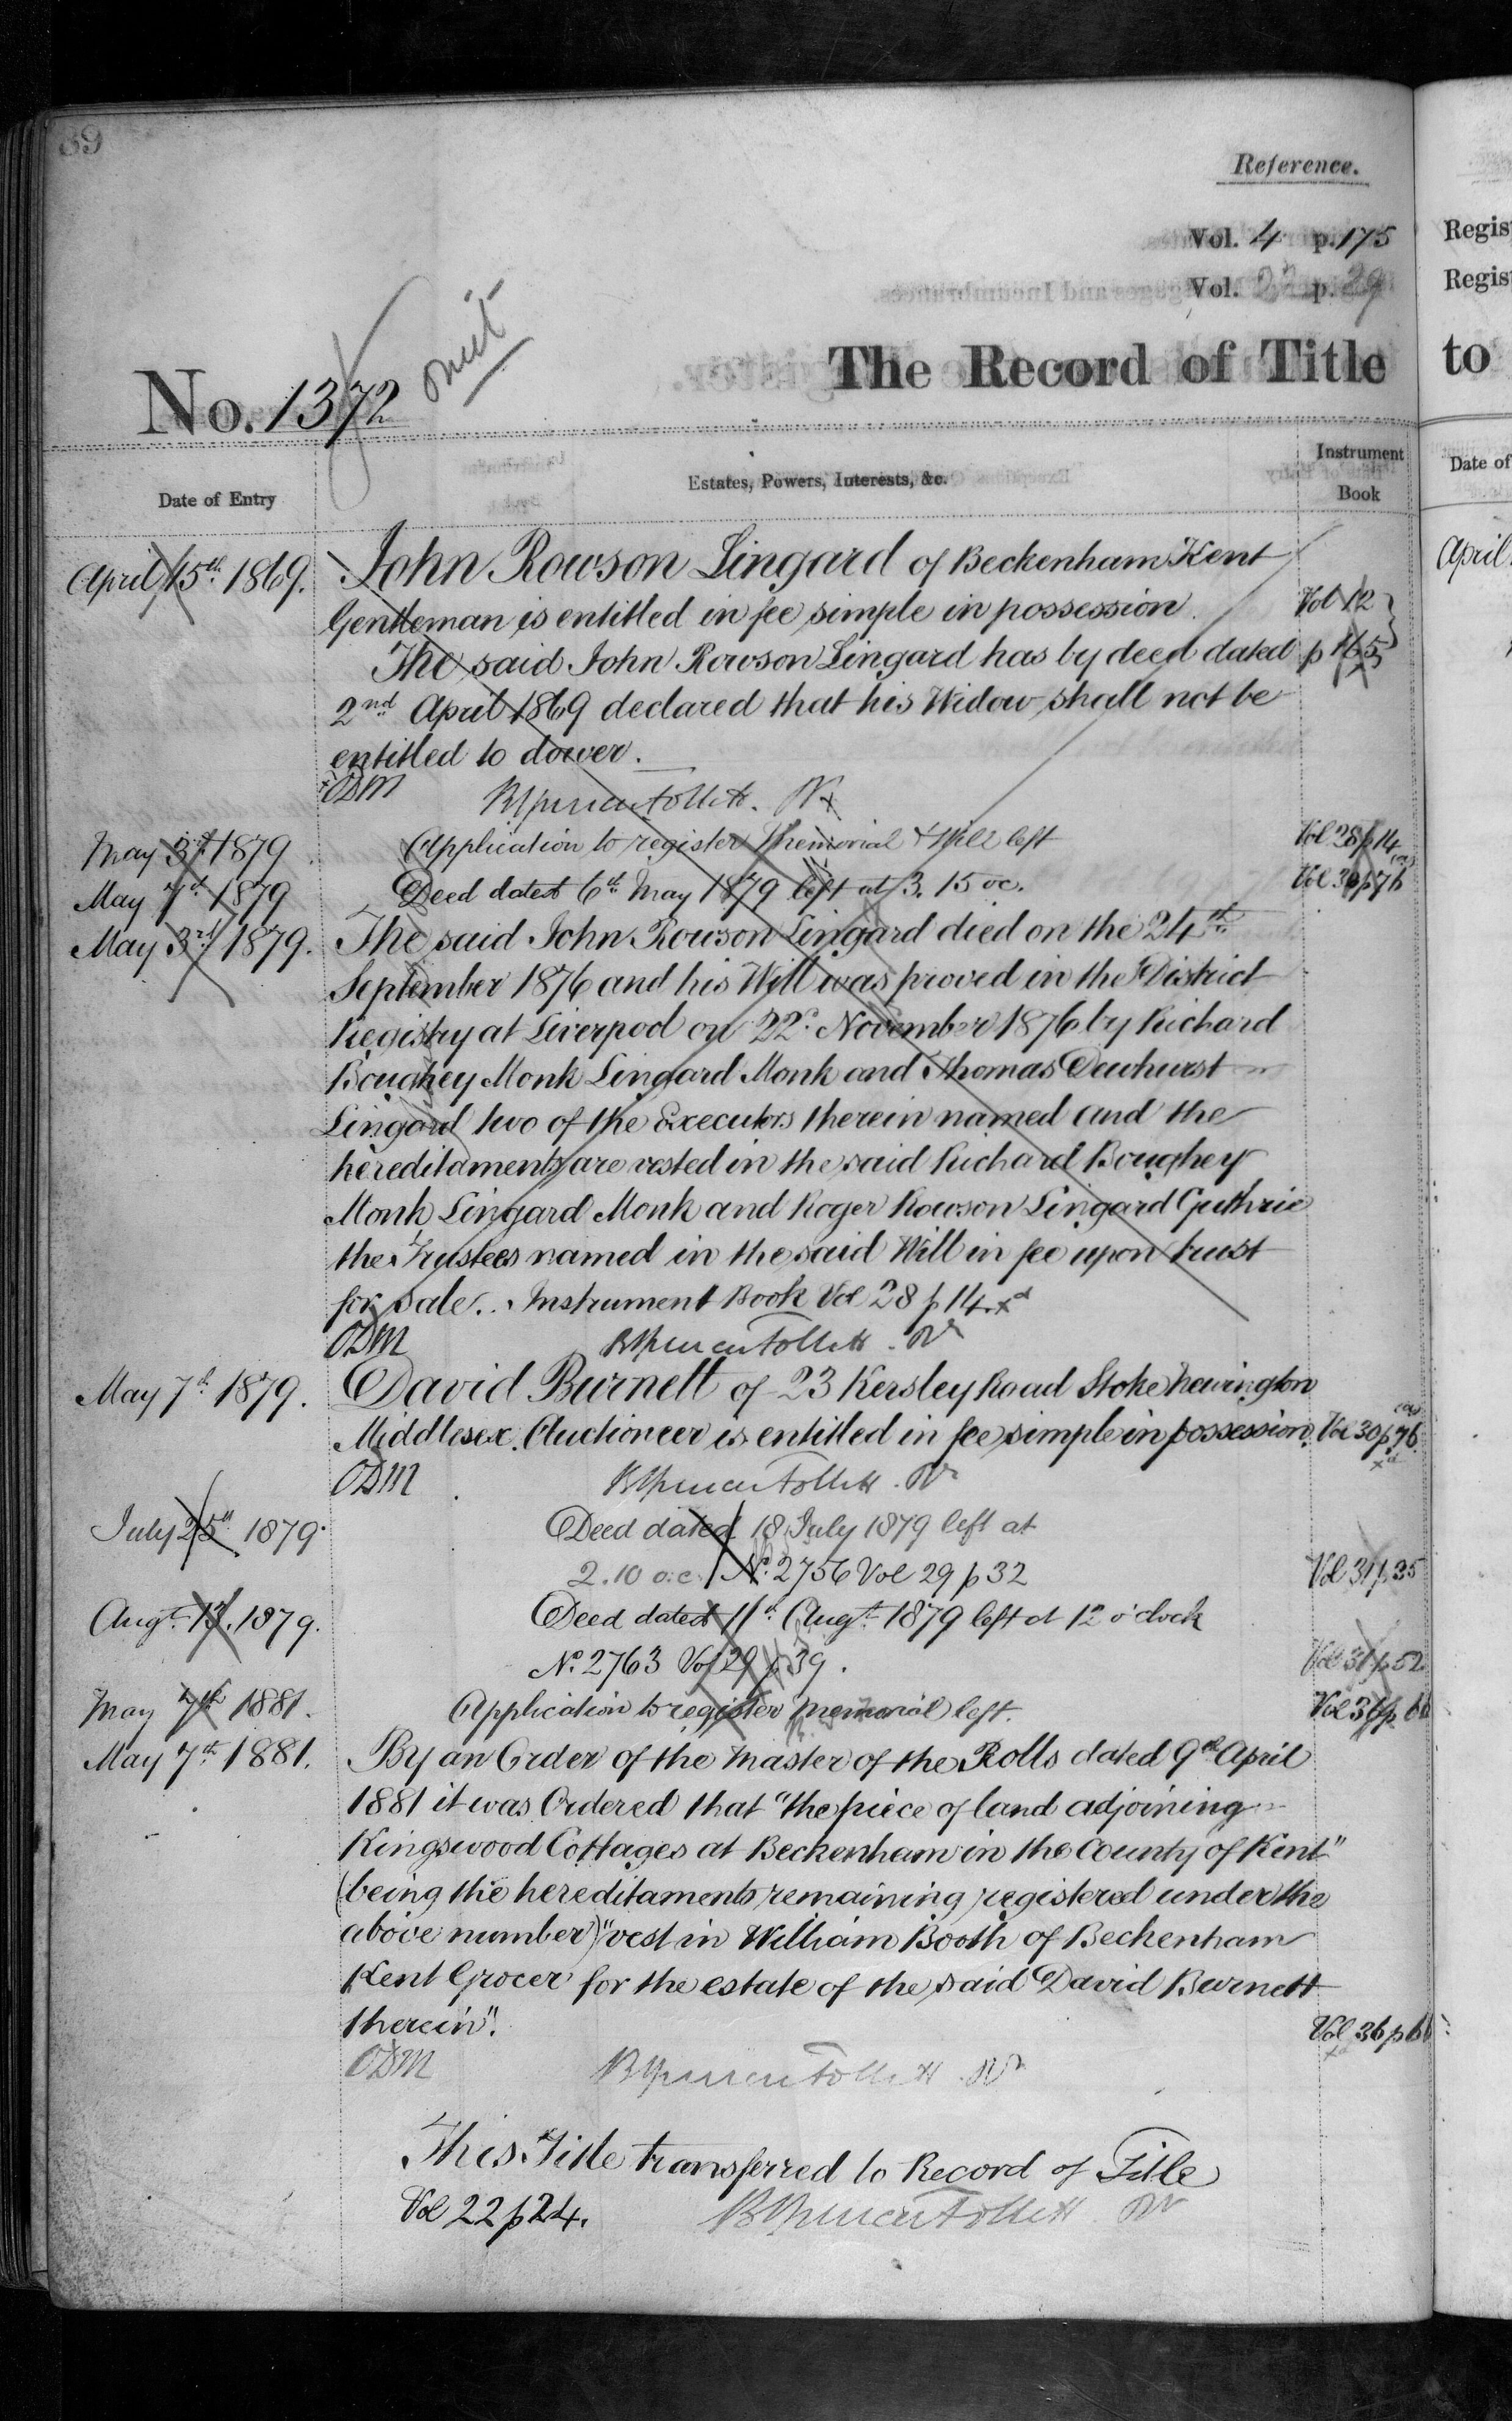 39
Reference.
Vol. 4 p. 175
Vol. 22 p. 29
The Record of Title
No. 1372
omit
Date of Entry
Estates, Powers, Interests, &c.
Instrument Book
April 15th 1869. John Rowson Lingard of Beckenham Kent
Gentleman is entitled in fee simple in possession. Vol 12
The said John Rowson Lingard has by deed dated p 165
2nd April 1869 declared that his Widow shall not be
entitled to dower.
ODM
May 3rd 1879 Application to register Memorial & Will left Vol 28 p 14
May 7th 1879 Deed dated 6th May 1879 left at 3.15 oc. Vol 30 p 76
May 3rd 1879. The said John Rowson Lingard died on the 24th
September 1876 and his Will was proved in the District
Registry at Liverpool on 22d November 1876 by Richard
Boughey Monk Lingard Monk and Thomas Dewhurst
Lingard two of the Executors therein named and the
hereditaments are vested in the said Richard Boughey
Monk Lingard Monk and Roger Rowson Lingard Guthrie
the Trustees named in the said Will in fee upon trust
for sale. Instrument Book Vol 28 p 14.
ODM
May 7th 1879. David Burnett of 23 Kersley Road Stoke Newington
Middlesex. Auctioneer is entitled in fee simple in possession. Vol 30 p. 76
ODM
July 25th 1879. Deed dated 18 July 1879 left at
2.10 o.c. No. 2756 Vol 29 p 32 Vol 31 p 35
Augt. 12. 1879. Deed dated 11th Augt. 1879 left at 12 o'clock
No. 2763 Vol 29 p 39. Vol 31 p 52
May 7th 1881. Application to register Memorial left. Vol 36 p 66
May 7th 1881. By an Order of the Master of the Rolls dated 9th April
1881 it was Ordered that "the piece of land adjoining
Kingswood Cottages at Beckenham in the County of Kent"
(being the hereditaments remaining registered under the
above number) "vest in William Booth of Beckenham
Kent Grocer for the estate of the said David Burnett
therein". Vol 36 p 66
ODM
This Title transferred to Record of Title
Vol 22 p 24.
Regis
Regis
to
Date of
April